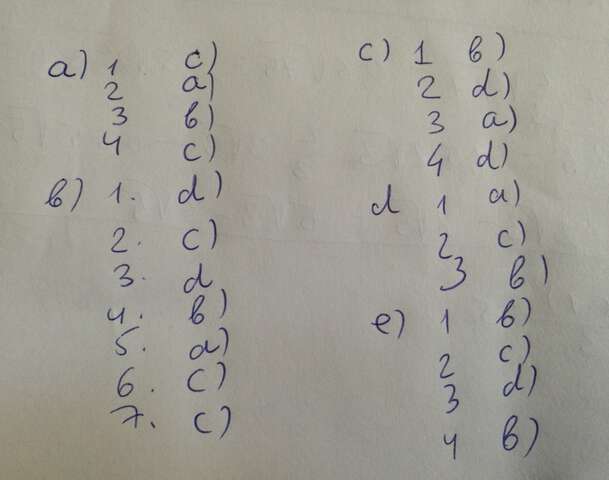 a) 1 c)
2 a)
3 b)
4 c)
b) 1. d)
2. c)
3. d
4. b)
5. a)
6. c)
7. c)
c) 1 b)
2 d)
3 a)
4 d)
d 1 a)
2 c)
3 b)
e) 1 b)
2 c)
3 d)
4 b)